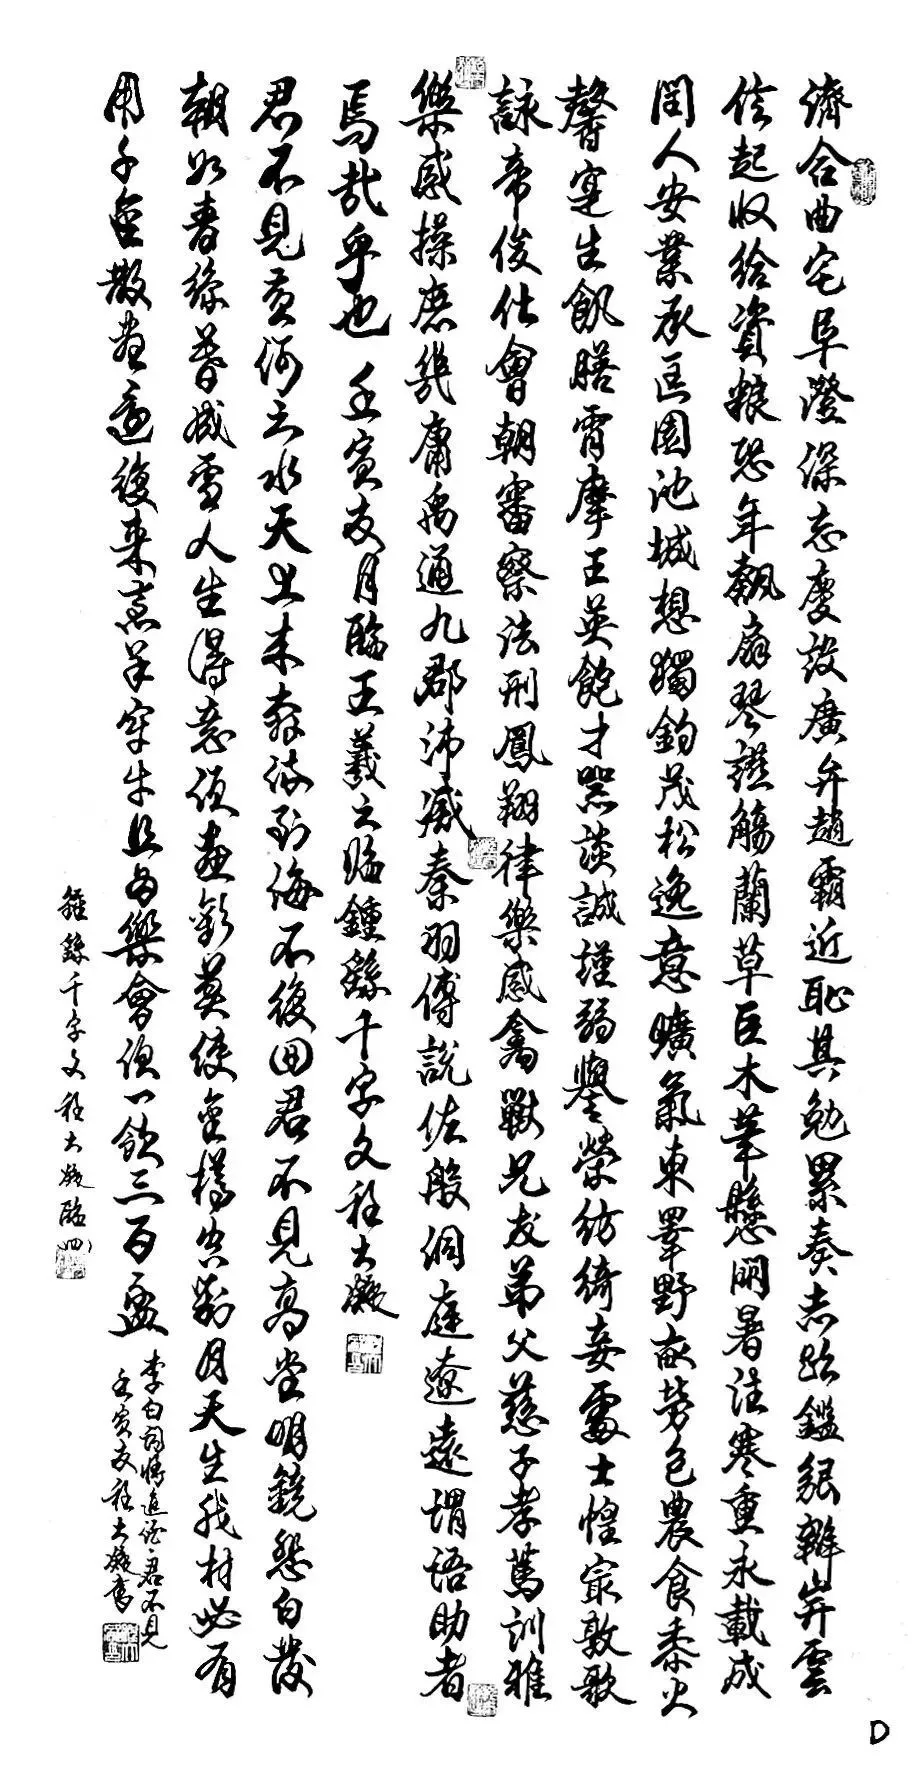 濟合曲宅阜澄保忘慶投廣弁趙霸近恥其勉累奏志跡鑑貌辨岸雲
起收給資糧恐年飄扇琴讌觴蘭草巨木華懸暑注寒重永載成
閏人安業承匡園池城想獨鈞茂松逸意曠氣東野畝勞色農食黍火
馨寔生飢膳霄摩王英飽才器談誠謹弱譽榮紡綺妾處士惶寂敦歌
詠帝俊仕會朝審察法刑鳳翔律樂感禽獸兄友弟父慈子孝篤訓雅
樂感操庶幾庸禹通九郡沛臧秦羽傅說佐殷洞庭遼遠謂語助者
焉哉乎也 壬寅友月臨王羲之臨鍾繇千字文程大凝
君不見黃河之水天上來奔流到海不復回君不見高堂明鏡悲白發
朝如青絲暮成雪人生得意須盡歡莫使金樽空對月天生我材必有
用千金散盡還復來烹羊宰牛且為樂會須一飲三百盃
李白詞將進酒君不見
壬寅友程大凝書
鍾繇千字文程大凝臨
D